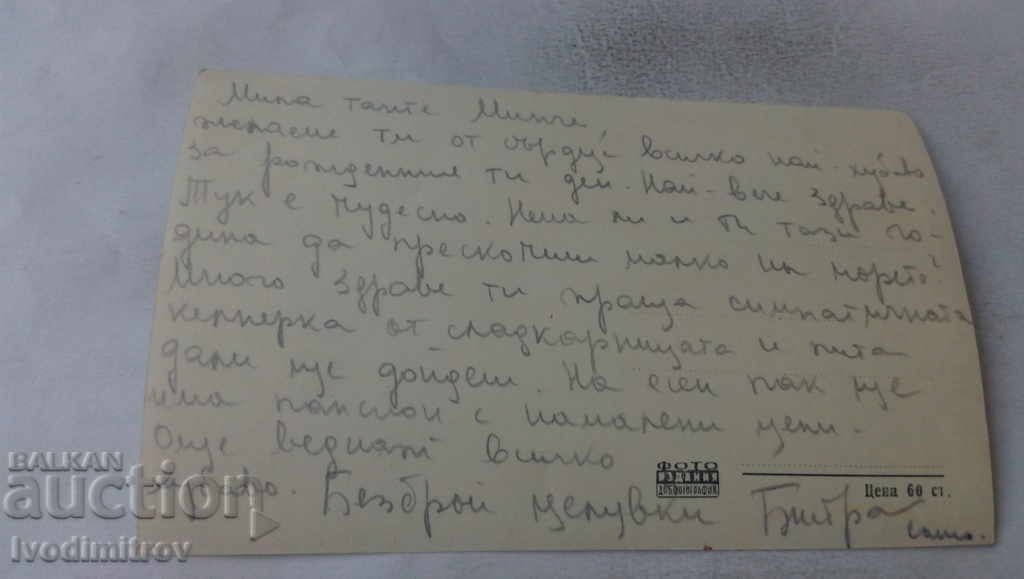 Мила танте Минче,
желаеме ти от сърдце всичко най-хубаво
за рожденния ти ден. Най-вече здраве.
Тук е чудесно. Нема ли и ти тази го-
дина да прескочиш малко на морето?
Много здраве ти праща симпатичната
келнерка от сладкарницата и пита
дали ще дойдеш. На есен пак ще
има пансион с намалени цени.
Още веднажъ всичко
Безброй целувки
ФОТО
ИЗДАНИЕ
Цена 60 ст.
BALKAN
auction
ivodimitrov